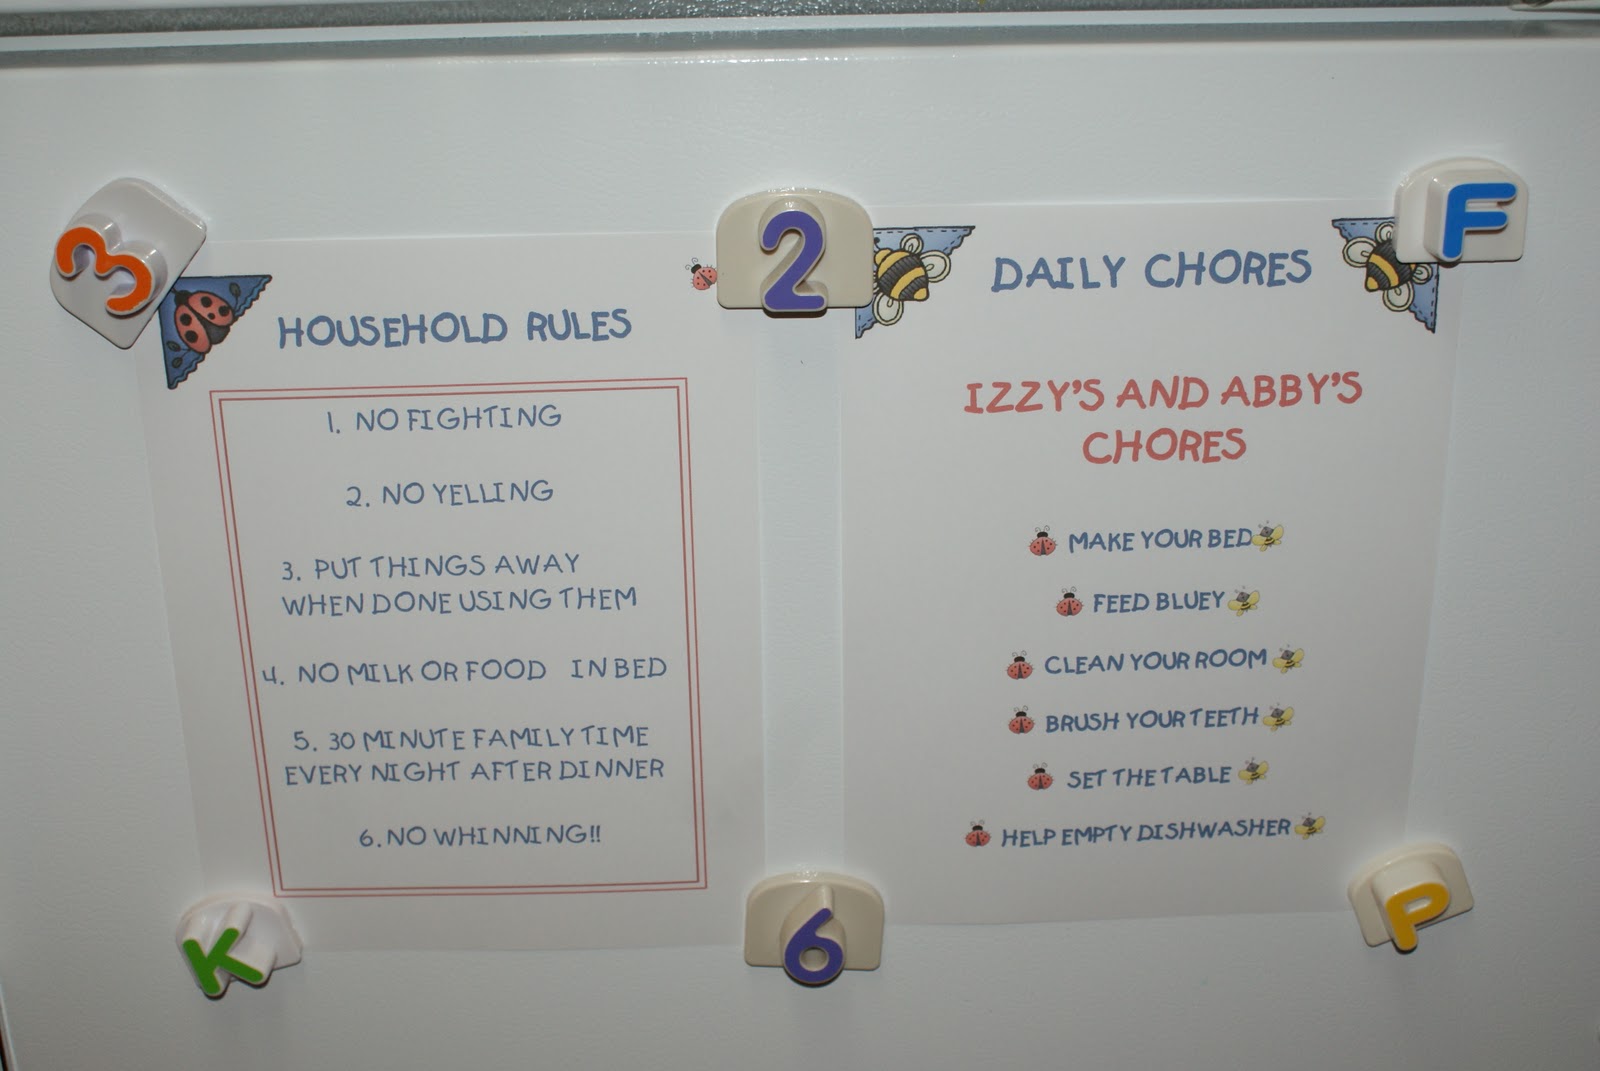 3
2
F
HOUSEHOLD RULES
1. NO FIGHTING
2. NO YELLING
3. PUT THINGS AWAY
WHEN DONE USING THEM
4. NO MILK OR FOOD IN BED
5. 30 MINUTE FAMILY TIME
EVERY NIGHT AFTER DINNER
6. NO WHINNING!!
DAILY CHORES
IZZY'S AND ABBY'S
CHORES
MAKE YOUR BED
FEED BLUEY
CLEAN YOUR ROOM
BRUSH YOUR TEETH
SET THE TABLE
HELP EMPTY DISHWASHER
K
6
P